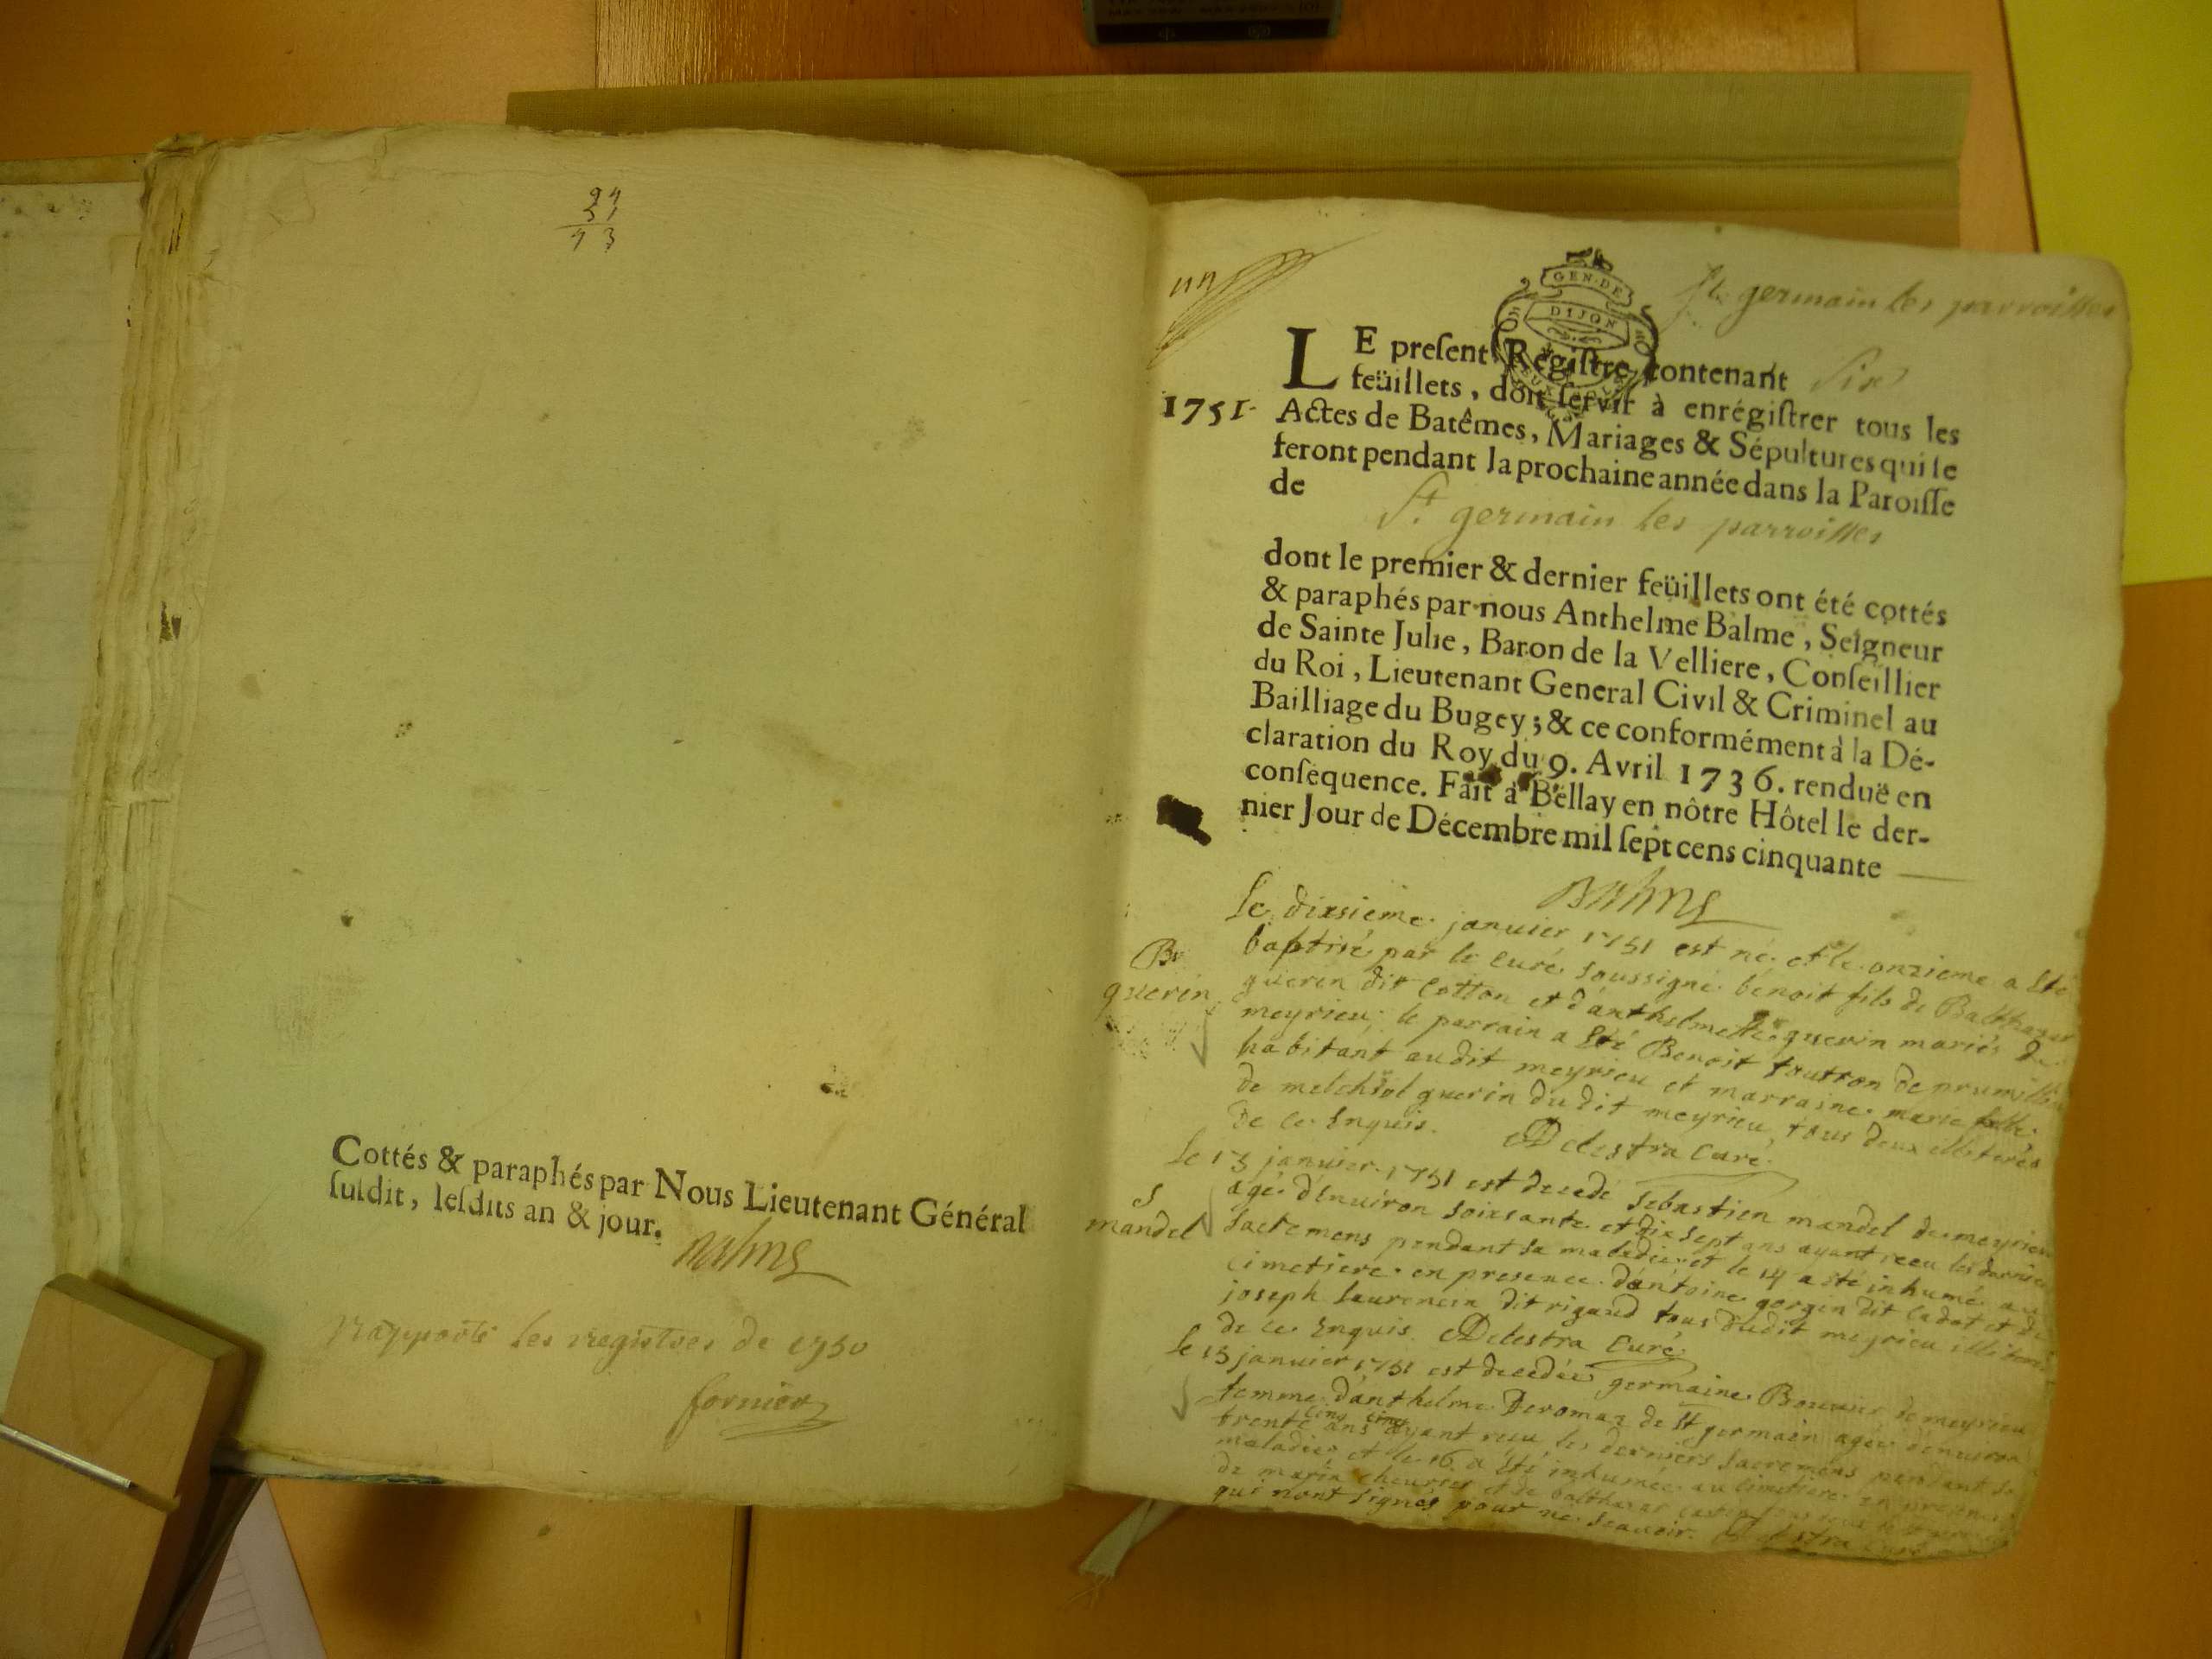 24
51
73
Cottés & paraphés par Nous Lieutenant Général
ſuſdit, leſdits an & jour.
Balme
rapporté les registres de 1750
fornier
un
GEN·DE
DIJON
St germain les parroisses
LE preſent Regiſtre contenant Six
feüillets, doit ſervir à enrégiſtrer tous les
1751.
Actes de Batêmes, Mariages & Sépultures qui ſe
feront pendant la prochaine année dans la Paroiſſe
de
St germain les parroisses
dont le premier & dernier feüillets ont été cottés
& paraphés par nous Anthelme Balme, Seigneur
de Sainte Julie, Baron de la Velliere, Conſeillier
du Roi, Lieutenant General Civil & Criminel au
Bailliage du Bugey; & ce conformément à la Dé-
claration du Roy du 9. Avril 1736. renduë en
conſequence. Fait à Bellay en nôtre Hôtel le der-
nier Jour de Décembre mil ſept cens cinquante
Balme
Le dixsieme janvier 1751 est né et le onzieme a été
B
baptisé par le curé soussigné benoit fils de Balthazar
guerin
guerin dit Cotton et d'anthelmette guerin mariés de
meyrieu; le parrain a été Benoit toutton de prumillieu
habitant audit meyrieu et marraine marie fille
de melchiol guerin dudit meyrieu, tous deux illiterés
de ce Enquis. Delestra Curé
Le 13 janvier 1751 est decedé Sebastien mandel de meyrieu
S
mandel
agé d'Environ soixante et dix sept ans ayant receu les derniers
Sacremens pendant sa maladie et le 14 a été inhumé au
cimetiere en presence d'antoine gorgin dit Cadot et de
joseph Laurencin dit rigaud tous dudit meyrieu illiterés
de ce Enquis. Delestra Curé
Le 15 janvier 1751 est decedée germaine Bouvier de meyrieu
femme d'anthelme Deromaz de St germain agée d'environ
trente cinq ans ayant receu les derniers Sacremens pendant sa
maladie et le 16 a été inhumée au Cimetiere en presence
de marin et de balthazar
qui n'ont signés pour ne scavoir. Delestra Curé